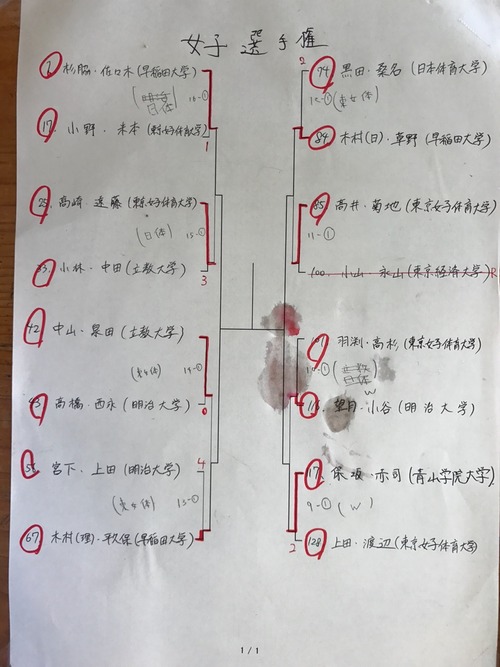 女子 選手権
1 杉脇・佐々木(早稲田大学)
(日体) 16-①
17 小野・末本(東京女子体育大学)
1
25 高崎・遠藤(東京女子体育大学)
(日体) 15-①
33 小林・中田(立教大学)
3
42 中山・泉田(立教大学)
(東女体) 14-①
高橋・西永(明治大学)
0
宮下・上田(明治大学)
4
(東女体) 13-①
67 木村(理)・平久保(早稲田大学)
2
74 黒田・桑名(日本体育大学)
12-①(東女体)
84 木村(日)・草野(早稲田大学)
85 高井・菊地(東京女子体育大学)
11-①
100 小山・永山(東京経済大学)R
羽渕・高杉(東京女子体育大学)
10-①(日体)
W
望月・小谷(明治大学)
保坂・赤司(青山学院大学)
9-①(W)
128 上田・渡辺(東京女子体育大学)
2
1/1